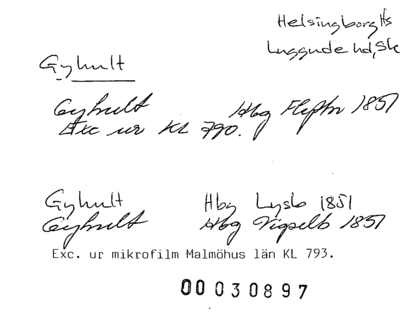 Helsingborg Hs
Luggude hd, Sk
Gyhult
Gyhult Hbg Flfptr 1851
Exc ur KL 790.
Gyhult Hbg Lysb 1851
Gyhult Hbg Vigselb 1851
Exc. ur mikrofilm Malmöhus län KL 793.
00 030897